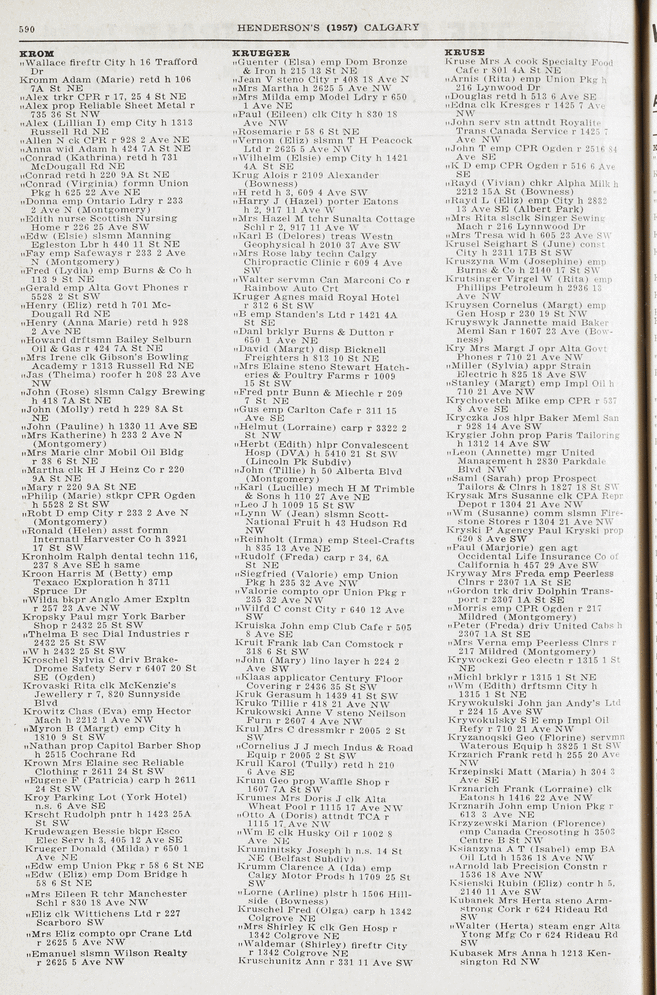 590
HENDERSON'S (1957) CALGARY
KROM
„Wallace fireftr City h 16 Trafford
Dr
Kromm Adam (Marie) retd h 106
7A St NE
„Alex trkr CPR r 17, 25 4 St NE
„Alex prop Reliable Sheet Metal r
735 36 St NW
„Alex (Lillian I) emp City h 1313
Russell Rd NE
„Allen N ck CPR r 928 2 Ave NE
„Anna wid Adam h 424 7A St NE
„Conrad (Kathrina) retd h 731
McDougall Rd NE
„Conrad retd h 220 9A St NE
„Conrad (Virginia) formn Union
Pkg h 625 22 Ave NE
„Donna emp Ontario Ldry r 233
2 Ave N (Montgomery)
„Edith nurse Scottish Nursing
Home r 226 25 Ave SW
„Edw (Elsie) slsmn Manning
Egleston Lbr h 440 11 St NE
„Fay emp Safeways r 233 2 Ave
N (Montgomery)
„Fred (Lydia) emp Burns & Co h
113 9 St NE
„Gerald emp Alta Govt Phones r
5528 2 St SW
„Henry (Eliz) retd h 701 Mc-
Dougall Rd NE
„Henry (Anna Marie) retd h 928
2 Ave NE
„Howard drftsmn Bailey Selburn
Oil & Gas r 424 7A St NE
„Mrs Irene clk Gibson's Bowling
Academy r 1313 Russell Rd NE
„Jas (Thelma) roofer h 208 23 Ave
NW
„John (Rose) slsmn Calgy Brewing
h 418 7A St NE
„John (Molly) retd h 229 8A St
NE
„John (Pauline) h 1330 11 Ave SE
„Mrs Katherine) h 233 2 Ave N
(Montgomery)
„Mrs Marie clnr Mobil Oil Bldg
r 38 6 St NE
„Martha clk H J Heinz Co r 220
9A St NE
„Mary r 220 9A St NE
„Philip (Marie) stkpr CPR Ogden
h 5528 2 St SW
„Robt D emp City r 233 2 Ave N
(Montgomery)
„Ronald (Helen) asst formn
Internatl Harvester Co h 3921
17 St SW
Kronholm Ralph dental techn 116,
237 8 Ave SE h same
Kroon Harris M (Betty) emp
Texaco Exploration h 3711
Spruce Dr
„Wilda bkpr Anglo Amer Expltn
r 257 23 Ave NW
Kropsky Paul mgr York Barber
Shop r 2432 25 St SW
„Thelma B sec Dial Industries r
2432 25 St SW
„W h 2432 25 St SW
Kroschel Sylvia C driv Brake-
Drome Safety Serv r 6407 20 St
SE (Ogden)
Krovaski Rita clk McKenzie's
Jewellery r 7, 820 Sunnyside
Blvd
Krowitz Chas (Eva) emp Hector
Mach h 2212 1 Ave NW
„Myron B (Margt) emp City h
1810 9 St SW
„Nathan prop Capitol Barber Shop
h 2515 Cochrane Rd
Krown Mrs Elaine sec Reliable
Clothing r 2611 24 St SW
„Eugene F (Patricia) carp h 2611
24 St SW
Kroy Parking Lot (York Hotel)
n.s. 6 Ave SE
Krscht Rudolph pntr h 1423 25A
St SW
Krudewagen Bessie bkpr Esco
Elec Serv h 3, 405 12 Ave SE
Krueger Donald (Milda) r 650 1
Ave NE
„Edw emp Union Pkg r 58 6 St NE
„Edw (Eliz) emp Dom Bridge h
58 6 St NE
„Mrs Eileen R tchr Manchester
Schl r 830 18 Ave NW
„Eliz clk Wittichens Ltd r 227
Scarboro SW
„Mrs Eliz compto opr Crane Ltd
r 2625 5 Ave NW
„Emanuel slsmn Wilson Realty
r 2625 5 Ave NW
KRUEGER
„Guenter (Elsa) emp Dom Bronze
& Iron h 215 13 St NE
„Jean V steno City r 408 18 Ave N
„Mrs Martha h 2625 5 Ave NW
„Mrs Milda emp Model Ldry r 650
1 Ave NE
„Paul (Eileen) clk City h 830 18
Ave NW
„Rosemarie r 58 6 St NE
„Vernon (Eliz) slsmn T H Peacock
Ltd r 2625 5 Ave NW
„Wilhelm (Elsie) emp City h 1421
4A St SE
Krug Alois r 2109 Alexander
(Bowness)
„H retd h 3, 609 4 Ave SW
„Harry J (Hazel) porter Eatons
h 2, 917 11 Ave W
„Mrs Hazel M tchr Sunalta Cottage
Schl r 2, 917 11 Ave W
„Karl B (Delores) treas Westn
Geophysical h 2010 37 Ave SW
„Mrs Rose laby techn Calgy
Chiropractic Clinic r 609 4 Ave
SW
„Walter servmn Can Marconi Co r
Rainbow Auto Crt
Kruger Agnes maid Royal Hotel
r 312 6 St SW
„B emp Standen's Ltd r 1421 4A
St SE
„Danl brklyr Burns & Dutton r
650 1 Ave NE
„David (Margt) disp Bicknell
Freighters h 813 10 St NE
„Mrs Elaine steno Stewart Hatch-
eries & Poultry Farms r 1009
15 St SW
„Fred pntr Bunn & Miechle r 209
7 St NE
„Gus emp Carlton Cafe r 311 15
Ave SE
„Helmut (Lorraine) carp r 3322 2
St NW
„Herbt (Edith) hlpr Convalescent
Hosp (DVA) h 5410 21 St SW
(Lincoln Pk Subdiv)
„John (Tillie) h 50 Alberta Blvd
(Montgomery)
„Karl (Lucille) mech H M Trimble
& Sons h 110 27 Ave NE
„Leo J h 1009 15 St SW
„Lynn W (Jean) slsmn Scott-
National Fruit h 43 Hudson Rd
NW
„Reinholt (Irma) emp Steel-Crafts
h 835 13 Ave NE
„Rudolf (Freda) carp r 34, 6A
St NE
„Siegfried (Valorie) emp Union
Pkg h 235 32 Ave NW
„Valorie compto opr Union Pkg r
235 32 Ave NW
„Wilfd C const City r 640 12 Ave
SW
Kruiska John emp Club Cafe r 505
8 Ave SE
Kruit Frank lab Can Comstock r
318 6 St SW
„John (Mary) lino layer h 224 2
Ave SW
„Klaas applicator Century Floor
Covering r 2436 35 St SW
Kruk Gerasum h 1439 41 St SW
Kruko Tillie r 418 21 Ave NW
Krukowski Anne V steno Neilson
Furn r 2607 4 Ave NW
Krul Mrs C dressmkr r 2005 2 St
SW
„Cornelius J J mech Indus & Road
Equip r 2005 2 St SW
Krull Karol (Tully) retd h 210
6 Ave SE
Krum Geo prop Waffle Shop r
1607 7A St SW
Krumes Mrs Doris J clk Alta
Wheat Pool r 1115 17 Ave NW
„Otto A (Doris) attndt TCA r
1115 17 Ave NW
„Wm E clk Husky Oil r 1002 8
Ave NE
Kruminitsky Joseph h n.s. 14 St
NE (Belfast Subdiv)
Krumm Clarence A (Ida) emp
Calgy Motor Prods h 1709 25 St
SW
„Lorne (Arline) plstr h 1506 Hill-
side (Bowness)
Kruschel Fred (Olga) carp h 1342
Colgrove NE
„Mrs Shirley K clk Gen Hosp r
1342 Colgrove NE
„Waldemar (Shirley) fireftr City
r 1342 Colgrove NE
Kruschunitz Ann r 331 11 Ave SW
KRUSE
Kruse Mrs A cook Specialty Food
Cafe r 801 4A St NE
„Arnis (Rita) emp Union Pkg h
216 Lynwood Dr
„Douglas retd h 513 6 Ave SE
„Edna clk Kresges r 1425 7 Ave
NW
„John serv stn attndt Royalite
Trans Canada Service r 1425 7
Ave NW
„John T emp CPR Ogden r 2516 84
Ave SE
„K D emp CPR Ogden r 516 6 Ave
SE
„Rayd (Vivian) chkr Alpha Milk h
2212 15A St (Bowness)
„Rayd L (Eliz) emp City h 2832
13 Ave SE (Albert Park)
„Mrs Rita slsclk Singer Sewing
Mach r 216 Lynnwood Dr
„Mrs Tresa wid h 605 23 Ave SW
Krusel Seighart S (June) const
City h 2311 17B St SW
Kruszyna Wm (Josephine) emp
Burns & Co h 2140 17 St SW
Krutsinger Virgel W (Rita) emp
Phillips Petroleum h 2936 13
Ave NW
Kruysen Cornelus (Margt) emp
Gen Hosp r 230 19 St NW
Kruyswyk Jannette maid Baker
Meml San r 1607 23 Ave (Bow-
ness)
Kry Mrs Margt J opr Alta Govt
Phones r 710 21 Ave NW
„Miller (Sylvia) appr Strain
Electric h 825 18 Ave SW
„Stanley (Margt) emp Impl Oil h
710 21 Ave NW
Krychovetch Mike emp CPR r 537
8 Ave SE
Kryczka Jos hlpr Baker Meml San
r 928 14 Ave SW
Krygier John prop Paris Tailoring
h 1312 14 Ave SW
„Leon (Annette) mgr United
Management h 2830 Parkdale
Blvd NW
„Saml (Sarah) prop Prospect
Tailors & Clnrs h 1827 18 St SW
Krysak Mrs Susanne clk CPA Repr
Depot r 1304 21 Ave NW
„Wm (Susanne) comm slsmn Fire-
stone Stores r 1304 21 Ave NW
Kryski P Agency Paul Kryski prop
620 8 Ave SW
„Paul (Marjorie) gen agt
Occidental Life Insurance Co of
California h 457 29 Ave SW
Kryway Mrs Freda emp Peerless
Clnrs r 2307 1A St SE
„Gordon trk driv Dolphin Trans-
port r 2307 1A St SE
„Morris emp CPR Ogden r 217
Mildred (Montgomery)
„Peter (Freda) driv United Cabs h
2307 1A St SE
„Mrs Verna emp Peerless Clnrs r
217 Mildred (Montgomery)
Krywockezi Geo electn r 1315 1 St
NE
„Michl brklyr r 1315 1 St NE
„Wm (Edith) drftsmn City h
1315 1 St NE
Krywokulski John jan Andy's Ltd
r 224 15 Ave SW
Krywokulsky S E emp Impl Oil
Refy r 710 21 Ave NW
Kryzanoqki Geo (Florine) servmn
Waterous Equip h 3825 1 St SW
Krzarich Frank retd h 255 20 Ave
NW
Krzepinski Matt (Maria) h 304 3
Ave SE
Krznarich Frank (Lorraine) clk
Eatons h 1416 22 Ave NW
Krznarih John emp Union Pkg r
613 3 Ave NE
Krzyzewski Marion (Florence)
emp Canada Creosoting h 3503
Centre B St NW
Ksianzyna A T (Isabel) emp BA
Oil Ltd h 1536 18 Ave NW
„Arnold lab Precision Constn r
1536 18 Ave NW
Ksienski Rubin (Eliz) contr h 5,
2140 11 Ave SW
Kubanek Mrs Herta steno Arm-
strong Cork r 624 Rideau Rd
SW
„Walter (Herta) steam engr Alta
Ytong Mfg Co r 624 Rideau Rd
SW
Kubasek Mrs Anna h 1213 Ken-
sington Rd NW